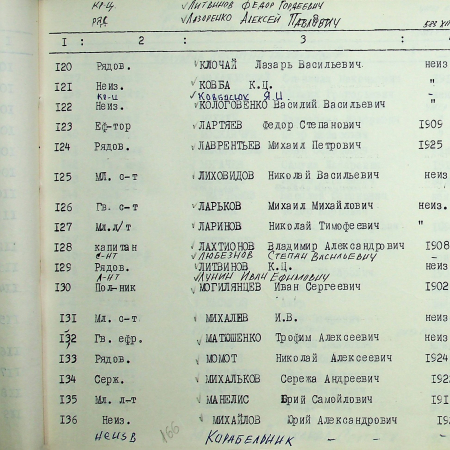 кр-ц. ✓ Литвинов Федор Гордеевич
ряд. ✓ Лазоренко Алексей Павлович
I : 2 : 3 :
I20 Рядов. ✓ КЛОЧАЙ Лазарь Васильевич неиз
I2I Неиз. ✓ КОВБА К.Ц. "
кр-ц ✓ Ковбасюк Я.И.
I22 Неиз. ✓ КОЛОГОВЕНКО Василий Васильевич "
I23 Еф-тор ✓ ЛАРТЯЕВ Федор Степанович I909
I24 Рядов. ✓ ЛАВРЕНТЬЕВ Михаил Петрович I925
I25 Мл. с-т ✓ ЛИХОВИДОВ Николай Васильевич неиз
I26 Гв. с-т ✓ ЛАРЬКОВ Михаил Михайлович неиз.
I27 Мл.л/т ✓ ЛАРИНОВ Николай Тимофеевич "
I28 капитан ✓ ЛАХТИОНОВ Владимир Александрович I908
с-нт ✓ Любезнов Степан Васильевич
I29 Рядов. ✓ ЛИТВИНОВ К.Ц. неиз
л-нт ✓ Лунин Иван Ефимович
I30 Пол-ник ✓ МОГИЛЯНЦЕВ Иван Сергеевич I902
I3I Мл. с-т ✓ МИХАЛЕВ И.В. неиз
I32 Гв. ефр. ✓ МАТЮШЕНКО Трофим Алексеевич неиз
I33 Рядов. ✓ МОМОТ Николай Алексеевич I924
I34 Серж. ✓ МИХАЛЬКОВ Сережа Андреевич I92
I35 Мл. л-т ✓ МАНЕЛИС Юрий Самойлович I91
I36 Неиз. ✓ МИХАЙЛОВ Юрий Александрович I92
неизв 166 Корабельник – – –